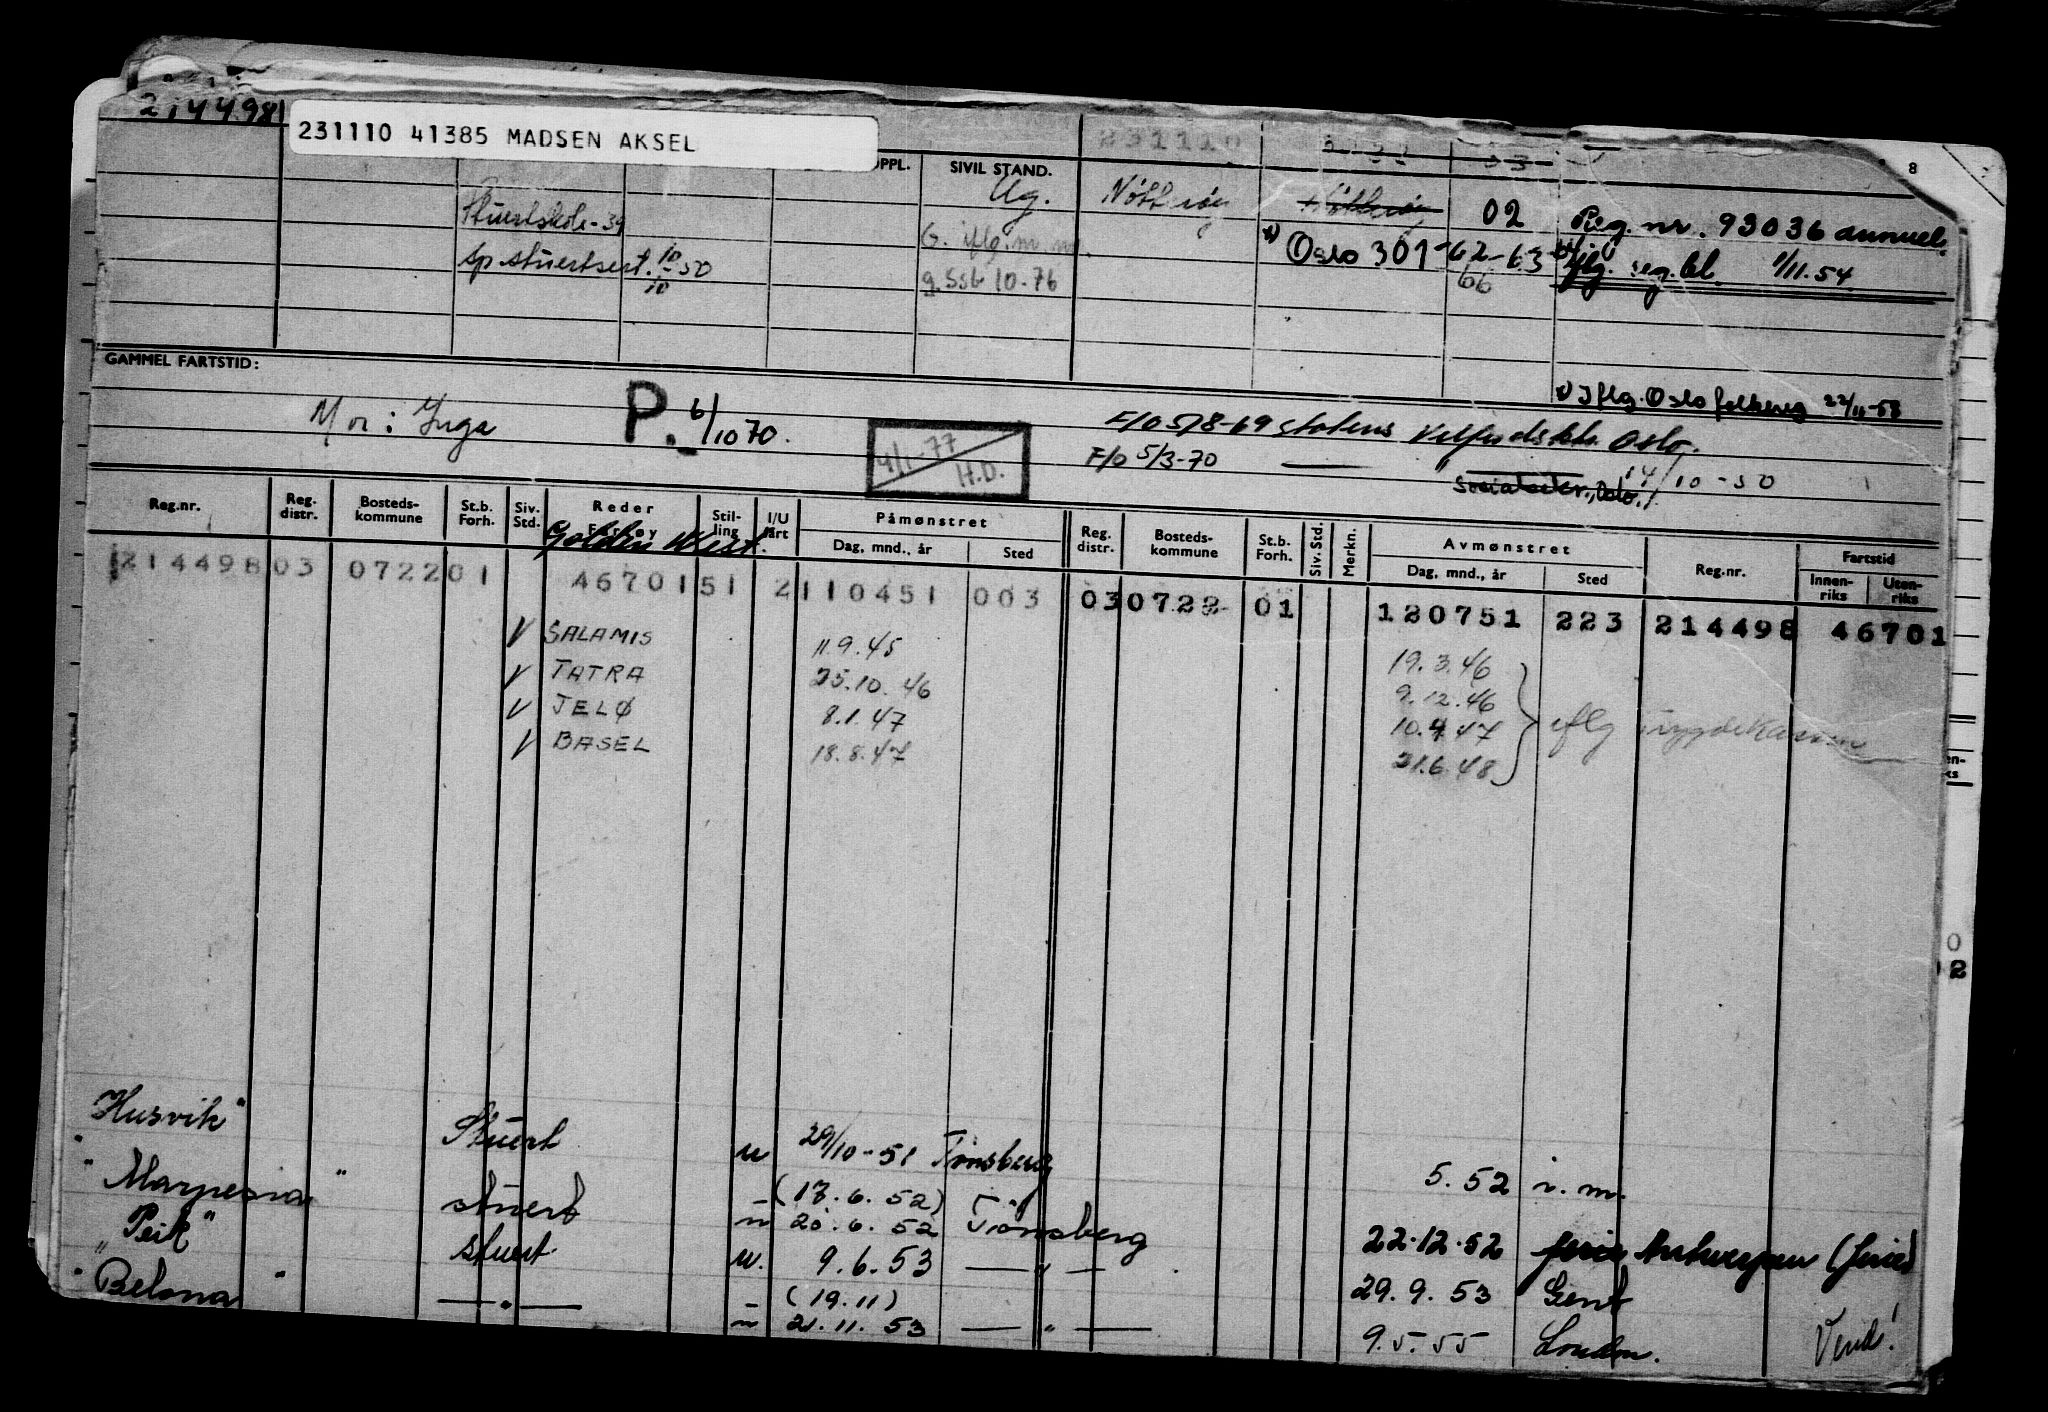 214498
231110 41385 MADSEN AKSEL
231110
8
OPPL. SIVIL STAND.
Ug. Nøtterøy Nøtterøy 02 Reg. nr. 93036 annul.
Stuertskole-39
G. iflg. m.m. x) Oslo 301-62-63 iflg. reg. bl. 1/11.54
sp. stuertsert. 10/10-50
g. SSB 10-76 66
GAMMEL FARTSTID:
x) Iflg. Oslo folkereg 22/11-58
Mor: Inga P. 6/10 70.
4/1-77 H.D.
F/O 5/8-69 Statens Velferdsktr. Oslo.
F/O 5/3-70 — " Oslo. 14/10-50
Reg.nr. Reg. distr. Bosteds- kommune St.b. Forh. Siv. Std. Reder Fartøy Stil- ling I/U fart Påmønstret Dag, mnd., år Sted Reg. distr. Bosteds- kommune St.b. Forh. Siv. Std. Merkn. Avmønstret Dag, mnd., år Sted Reg.nr. Fartstid Innen- riks Uten- riks
"Golden West"
214498 03 0722 01 46701 51 2 110451 003 03 0722 01 120751 223 214498 46701
V SALAMIS 11.9.45 19.3.46
V TATRA 25.10.46 9.12.46
V JELØ 8.1.47 10.4.47 iflg trygdekassen
V BASEL 18.8.47 21.6.48
"Husvik" Stuert u 29/10-51 Tønsberg 5.52 i.m.
"Marpesia" stuert u (17.6.52) 20.6.52 Tønsberg 22.12.52 Antwerpen (ferie)
"Peik" stuert u. 9.6.53 — " — 29.9.53 Gent
"Belona" — " — u (19.11) 21.11.53 — " — 9.5.55 London.
Vend!